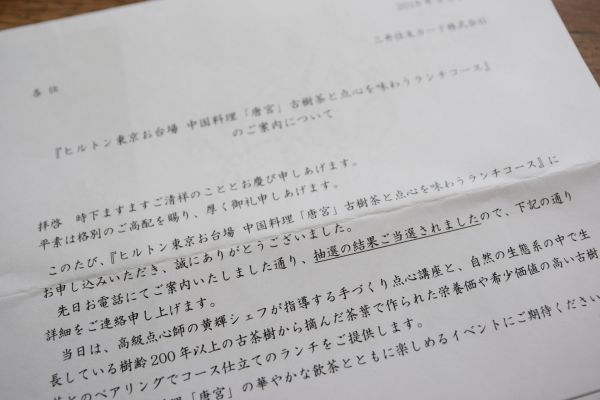 三井住友カード株式会社
各位
『ヒルトン東京お台場 中国料理「唐宮」古樹茶と点心を味わうランチコース』
のご案内について
拝啓 時下ますますご清祥のこととお慶び申しあげます。
平素は格別のご高配を賜り、厚く御礼申しあげます。
このたび、『ヒルトン東京お台場 中国料理「唐宮」古樹茶と点心を味わうランチコース』に
お申し込みいただき、誠にありがとうございました。
先日お電話にてご案内いたしました通り、抽選の結果ご当選されましたので、下記の通り
詳細をご連絡申し上げます。
当日は、高級点心師の黄輝シェフが指導する手づくり点心講座と、自然の生態系の中で生
長している樹齢200年以上の古茶樹から摘んだ茶葉で作られた栄養価や希少価値の高い古樹
茶とのペアリングでコース仕立てのランチをご提供します。
料理「唐宮」の華やかな飲茶とともに楽しめるイベントにご期待ください